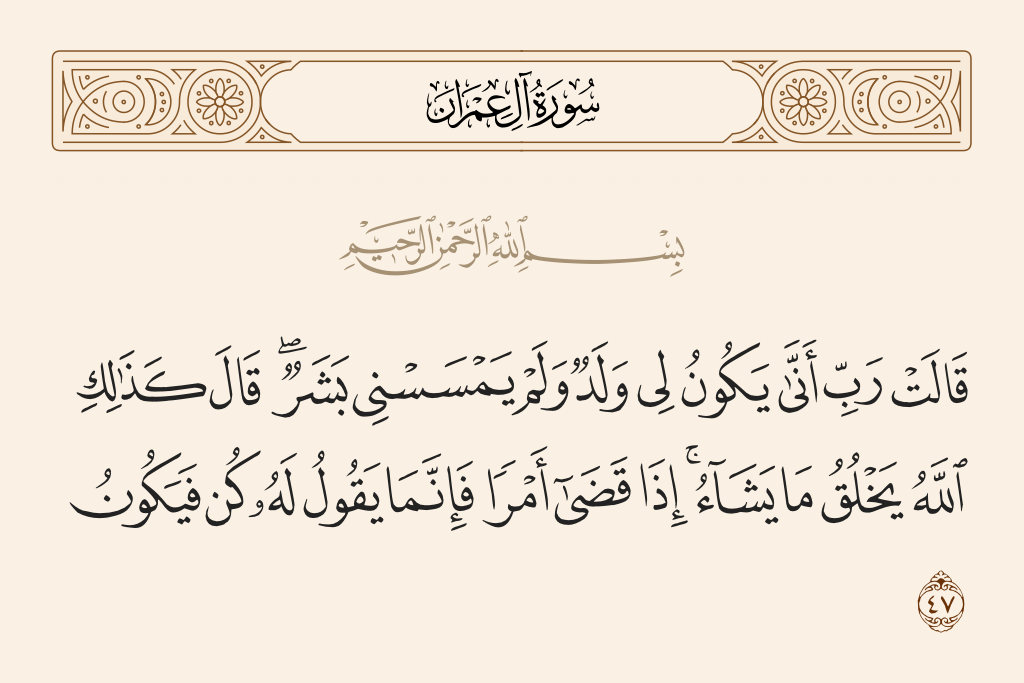 سُورَةُ آلِ عِمْرَانَ
بِسْمِ ٱللَّهِ ٱلرَّحْمَٰنِ ٱلرَّحِيمِ
قَالَتْ رَبِّ أَنَّىٰ يَكُونُ لِى وَلَدٌ وَلَمْ يَمْسَسْنِى بَشَرٌ ۖ قَالَ كَذَٰلِكِ
ٱللَّهُ يَخْلُقُ مَا يَشَآءُ ۚ إِذَا قَضَىٰٓ أَمْرًا فَإِنَّمَا يَقُولُ لَهُۥ كُن فَيَكُونُ
٤٧